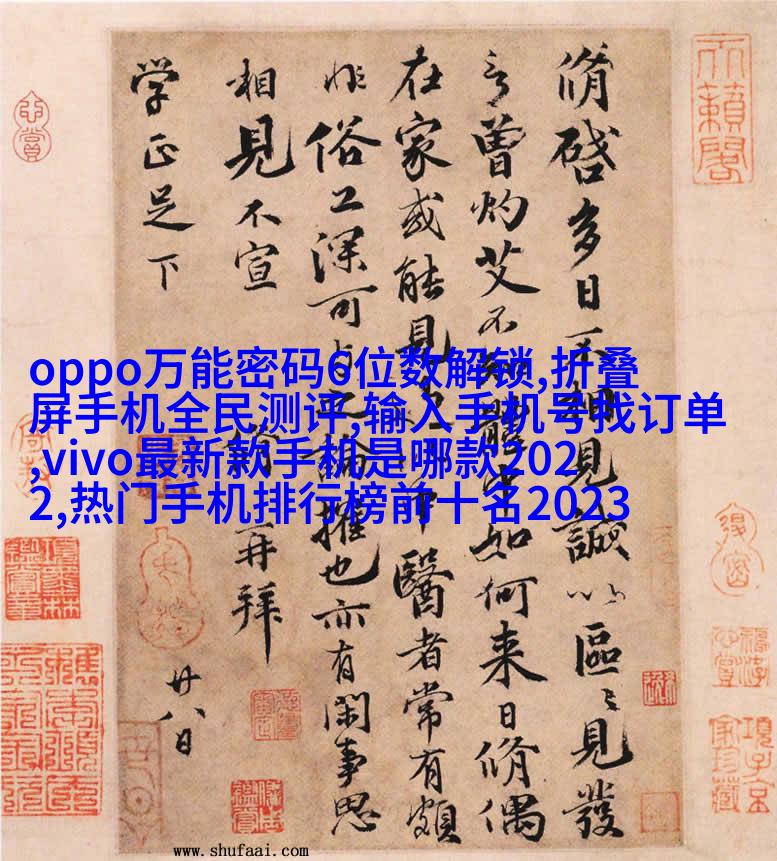 脩啓多日不相見誠以區〻見發
言曾灼艾不知體中如何来日脩偶
在家或能見過此中醫者常有頗
非俗工深可與之論搉也亦有閑事思
相見不宣 脩再拜
廿八日
学正足下
oppo万能密码6位数解锁,折叠
屏手机全民测评,输入手机号找订单
,vivo最新款手机是哪款202
2,热门手机排行榜前十名2023
天籟閣
www.shufaai.com